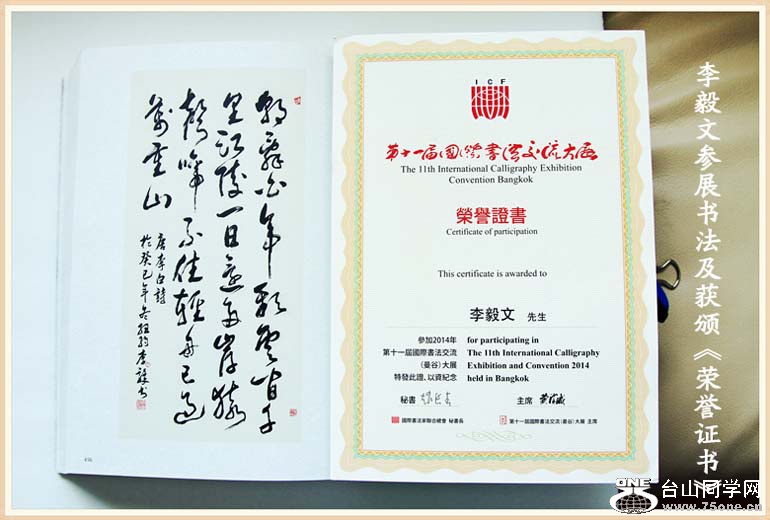 朝辭白帝彩雲間千
里江陵一日還兩岸猿
聲啼不住輕舟已過
萬重山
唐李白詩
於癸巳年冬紐約李毅書
I C F
第十一届國際書法交流大展
The 11th International Calligraphy Exhibition
Convention Bangkok
榮譽證書
Certificate of participation
This certificate is awarded to
李毅文 先生
參加2014年 for participating in
第十一屆國際書法交流 The 11th International Calligraphy
(曼谷)大展 Exhibition and Convention 2014
特發此證、以資紀念 held in Bangkok
秘書 主席
國際書法家聯合總會 秘書長 第十一屆國際書法交流(曼谷)大展 主席
李毅文参展书法及获颁《荣誉证书》
ONE 台山同学网
www.75one.cn